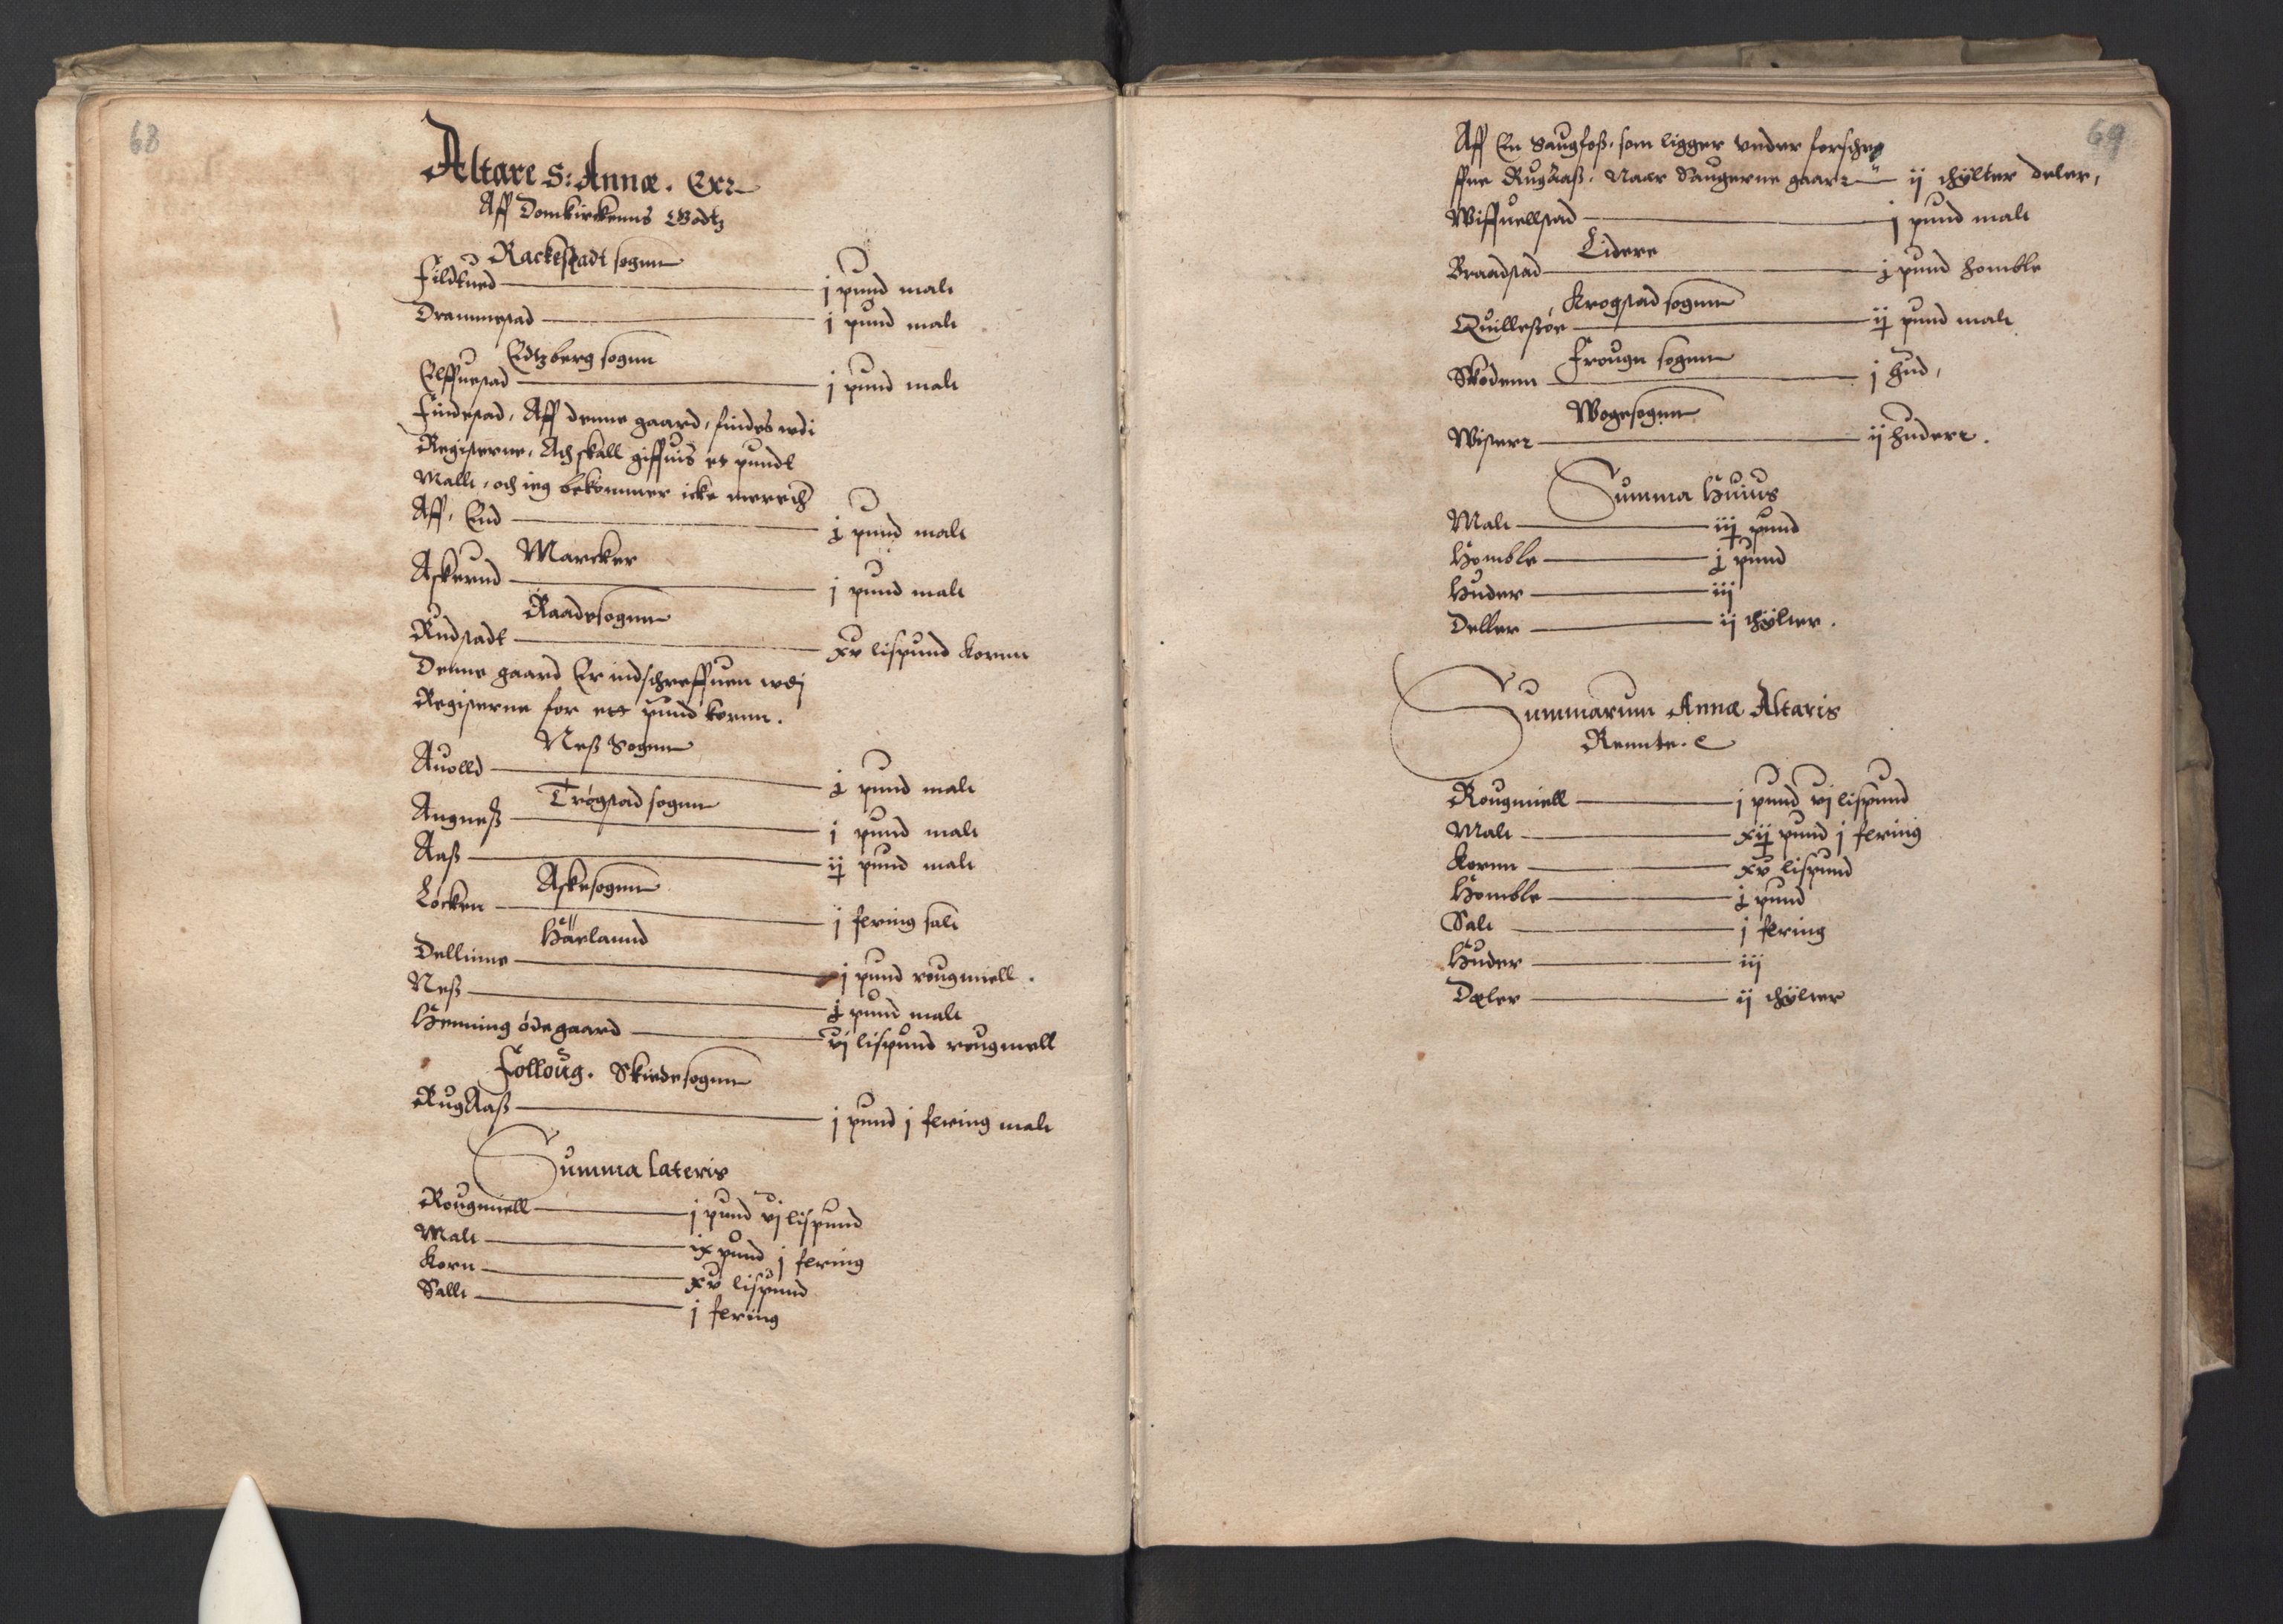 68
Altare S: Annæ. Err
Aff Domkirckenns Godtz
Rackestadt sognn
Fildtued j pund malt
Drammestad j pund malt
Edtzberg sognn
Elffuestad j pund malt
Findestad, Aff denne gaard, findes udi
Registerne, Ath skall giffuis et pundt
Mallt, och ieg bekommer icke mere
Aff, End j pund malt
Marcker
Askerud j pund malt
Raadesognn
Rudstadt xv lispund kornn
Denne gaard Er indschreffuen udj
Registerne for ett pund kornn.
Neß Sognn
Auolld j pund malt
Trøgstad sognn
Angneß j pund malt
Aaß ij pund malt
Askesognn
Løcken j fering salt
Härlannd
Dellinne j pund rougmiell.
Neß j pund malt
Henning ødegaard vj lispund rougmell
Folloug. Skiedesognn
RugAaß j pund j fering malt
Summa Lateris
Rougmiell j pund vj lispund
Malt ix pund j fering
Korn xv lispund
Sallt j fering
69
Aff En Saugfoß, som ligger under forschre
ffne RugAaß. Naar Saugerne gaar ij thÿlter deler,
Wiffuellstad j pund malt
Lidere
Braadstad j pund homble
Krogstad sognn
Quillestøe ij pund malt
Frougn sognn
Skodenn j hud,
Wogesognn
Wister ij huder.
Summa Huius
Malt iij pund
Homble j pund
Huder iij
Deller ij thÿlter.
Summarum Annæ Altaris
Rennte.
Rougmiell j pund vj lispund
Malt xij pund j fering
Kornn xv lispund
Homble j pund
Salt j fering
Huder iij
Dæler ij thÿlter